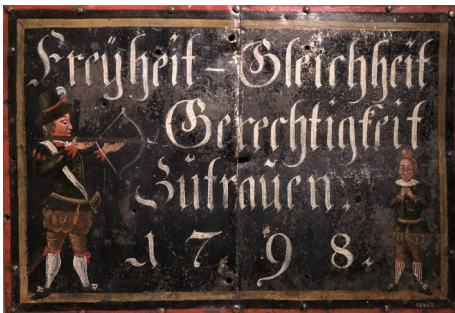 Freÿheit - Gleichheit
Gerechtigkeit
Zutrauen.
1798.